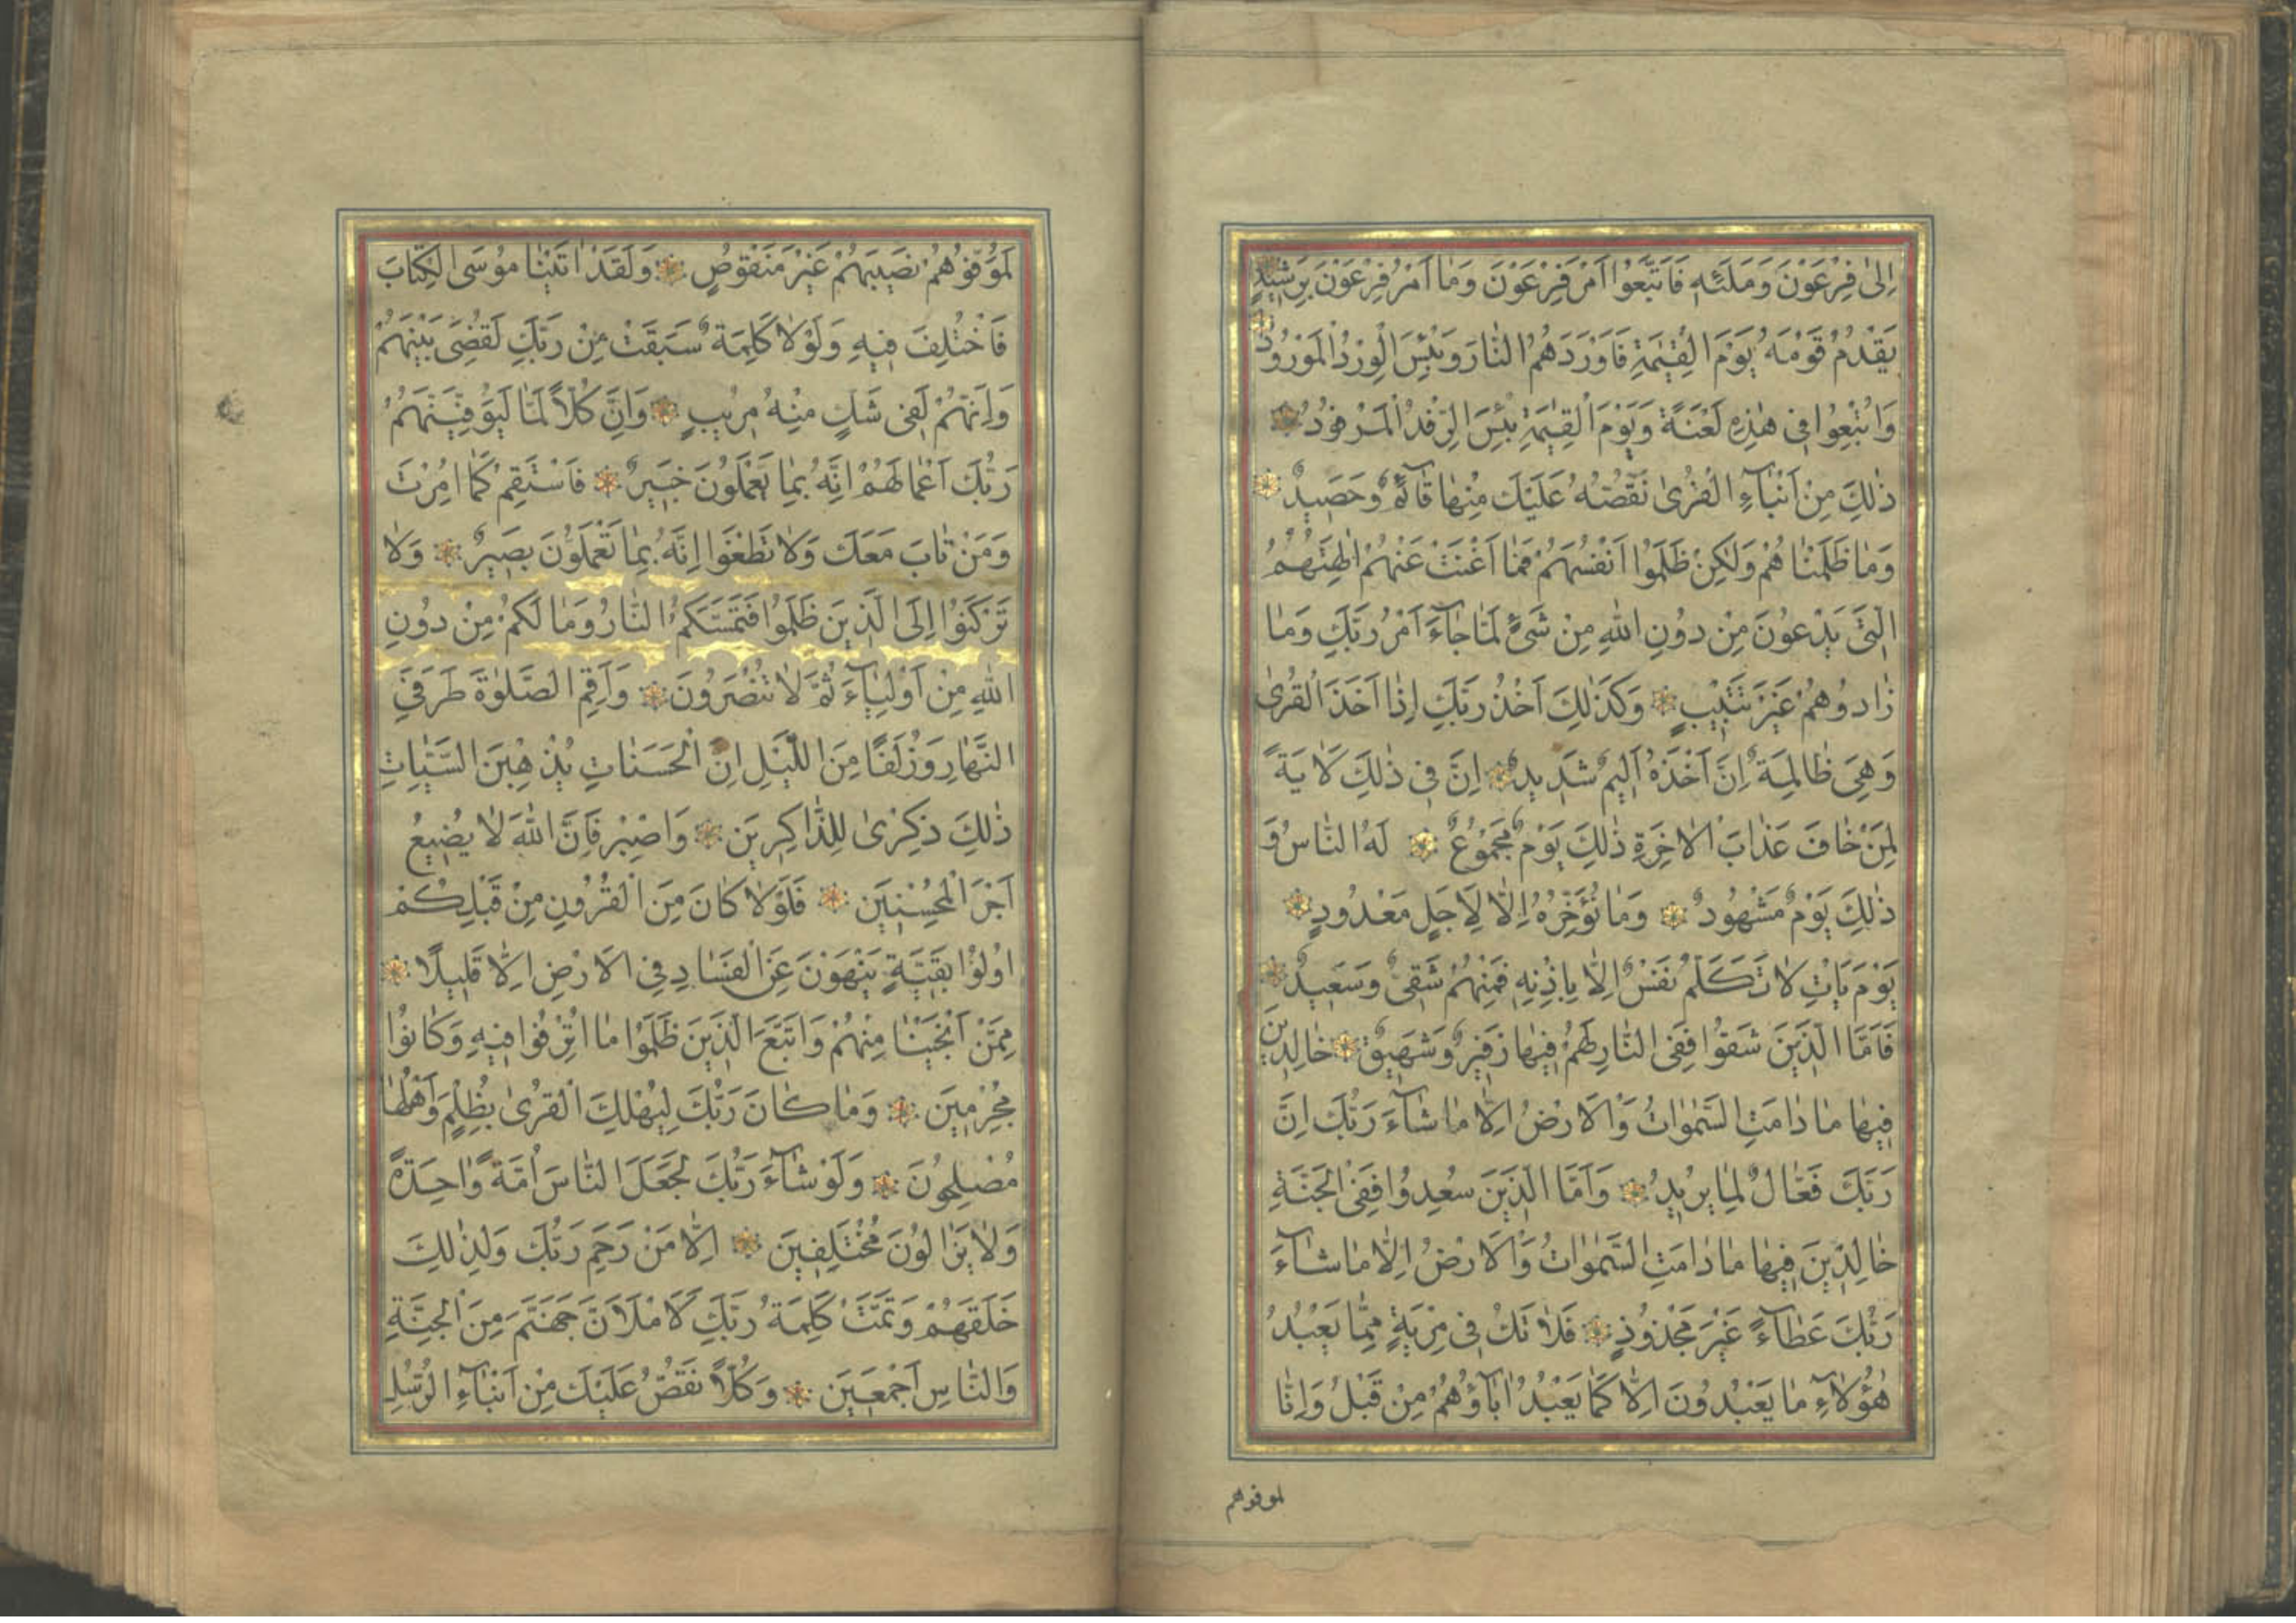 اِلىٰ فِرْعَوْنَ وَمَلَئِهٖ فَاتَّبَعُوا اَمْرَ فِرْعَوْنَ وَمَا اَمْرُ فِرْعَوْنَ بِرَشٖيدٍ
يَقْدُمُ قَوْمَهُ يَوْمَ الْقِيٰمَةِ فَاَوْرَدَهُمُ النَّارَ وَبِئْسَ الْوِرْدُ الْمَوْرُودُ
وَاُتْبِعُوا فٖى هٰذِهٖ لَعْنَةً وَيَوْمَ الْقِيٰمَةِ بِئْسَ الرِّفْدُ الْمَرْفُودُ
ذٰلِكَ مِنْ اَنْبَآءِ الْقُرٰى نَقُصُّهُ عَلَيْكَ مِنْهَا قَآئِمٌ وَحَصٖيدٌ
وَمَا ظَلَمْنَاهُمْ وَلٰكِنْ ظَلَمُوا اَنْفُسَهُمْ فَمَا اَغْنَتْ عَنْهُمْ اٰلِهَتُهُمُ
الَّتٖى يَدْعُونَ مِنْ دُونِ اللّٰهِ مِنْ شَىْءٍ لَمَّا جَآءَ اَمْرُ رَبِّكَ وَمَا
زَادُوهُمْ غَيْرَ تَتْبٖيبٍ وَكَذٰلِكَ اَخْذُ رَبِّكَ اِذَا اَخَذَ الْقُرٰى
وَهِىَ ظَالِمَةٌ اِنَّ اَخْذَهُ اَلٖيمٌ شَدٖيدٌ اِنَّ فٖى ذٰلِكَ لَاٰيَةً
لِمَنْ خَافَ عَذَابَ الْاٰخِرَةِ ذٰلِكَ يَوْمٌ مَجْمُوعٌ لَهُ النَّاسُ وَ
ذٰلِكَ يَوْمٌ مَشْهُودٌ وَمَا نُؤَخِّرُهُ اِلَّا لِاَجَلٍ مَعْدُودٍ
يَوْمَ يَاْتِ لَا تَكَلَّمُ نَفْسٌ اِلَّا بِاِذْنِهٖ فَمِنْهُمْ شَقِىٌّ وَسَعٖيدٌ
فَاَمَّا الَّذٖينَ شَقُوا فَفِى النَّارِ لَهُمْ فٖيهَا زَفٖيرٌ وَشَهٖيقٌ خَالِدٖينَ
فٖيهَا مَا دَامَتِ السَّمٰوَاتُ وَالْاَرْضُ اِلَّا مَا شَآءَ رَبُّكَ اِنَّ
رَبَّكَ فَعَّالٌ لِمَا يُرٖيدُ وَاَمَّا الَّذٖينَ سُعِدُوا فَفِى الْجَنَّةِ
خَالِدٖينَ فٖيهَا مَا دَامَتِ السَّمٰوَاتُ وَالْاَرْضُ اِلَّا مَا شَآءَ
رَبُّكَ عَطَآءً غَيْرَ مَجْذُوذٍ فَلَا تَكُ فٖى مِرْيَةٍ مِمَّا يَعْبُدُ
هٰؤُلَآءِ مَا يَعْبُدُونَ اِلَّا كَمَا يَعْبُدُ اٰبَآؤُهُمْ مِنْ قَبْلُ وَاِنَّا
لموفوهم
لَمُوَفُّوهُمْ نَصٖيبَهُمْ غَيْرَ مَنْقُوصٍ وَلَقَدْ اٰتَيْنَا مُوسَى الْكِتَابَ
فَاخْتُلِفَ فٖيهِ وَلَوْلَا كَلِمَةٌ سَبَقَتْ مِنْ رَبِّكَ لَقُضِىَ بَيْنَهُمْ
وَاِنَّهُمْ لَفٖى شَكٍّ مِنْهُ مُرٖيبٍ وَاِنَّ كُلًّا لَمَّا لَيُوَفِّيَنَّهُمْ
رَبُّكَ اَعْمَالَهُمْ اِنَّهُ بِمَا يَعْمَلُونَ خَبٖيرٌ فَاسْتَقِمْ كَمَا اُمِرْتَ
وَمَنْ تَابَ مَعَكَ وَلَا تَطْغَوْا اِنَّهُ بِمَا تَعْمَلُونَ بَصٖيرٌ وَلَا
تَرْكَنُوا اِلَى الَّذٖينَ ظَلَمُوا فَتَمَسَّكُمُ النَّارُ وَمَا لَكُمْ مِنْ دُونِ
اللّٰهِ مِنْ اَوْلِيَآءَ ثُمَّ لَا تُنْصَرُونَ وَاَقِمِ الصَّلٰوةَ طَرَفَىِ
النَّهَارِ وَزُلَفًا مِنَ اللَّيْلِ اِنَّ الْحَسَنَاتِ يُذْهِبْنَ السَّيِّاٰتِ
ذٰلِكَ ذِكْرٰى لِلذَّاكِرٖينَ وَاصْبِرْ فَاِنَّ اللّٰهَ لَا يُضٖيعُ
اَجْرَ الْمُحْسِنٖينَ فَلَوْلَا كَانَ مِنَ الْقُرُونِ مِنْ قَبْلِكُمْ
اُولُوا بَقِيَّةٍ يَنْهَوْنَ عَنِ الْفَسَادِ فِى الْاَرْضِ اِلَّا قَلٖيلًا
مِمَّنْ اَنْجَيْنَا مِنْهُمْ وَاتَّبَعَ الَّذٖينَ ظَلَمُوا مَا اُتْرِفُوا فٖيهِ وَكَانُوا
مُجْرِمٖينَ وَمَا كَانَ رَبُّكَ لِيُهْلِكَ الْقُرٰى بِظُلْمٍ وَاَهْلُهَا
مُصْلِحُونَ وَلَوْ شَآءَ رَبُّكَ لَجَعَلَ النَّاسَ اُمَّةً وَاحِدَةً
وَلَا يَزَالُونَ مُخْتَلِفٖينَ اِلَّا مَنْ رَحِمَ رَبُّكَ وَلِذٰلِكَ
خَلَقَهُمْ وَتَمَّتْ كَلِمَةُ رَبِّكَ لَاَمْلَاَنَّ جَهَنَّمَ مِنَ الْجِنَّةِ
وَالنَّاسِ اَجْمَعٖينَ وَكُلًّا نَقُصُّ عَلَيْكَ مِنْ اَنْبَآءِ الرُّسُلِ